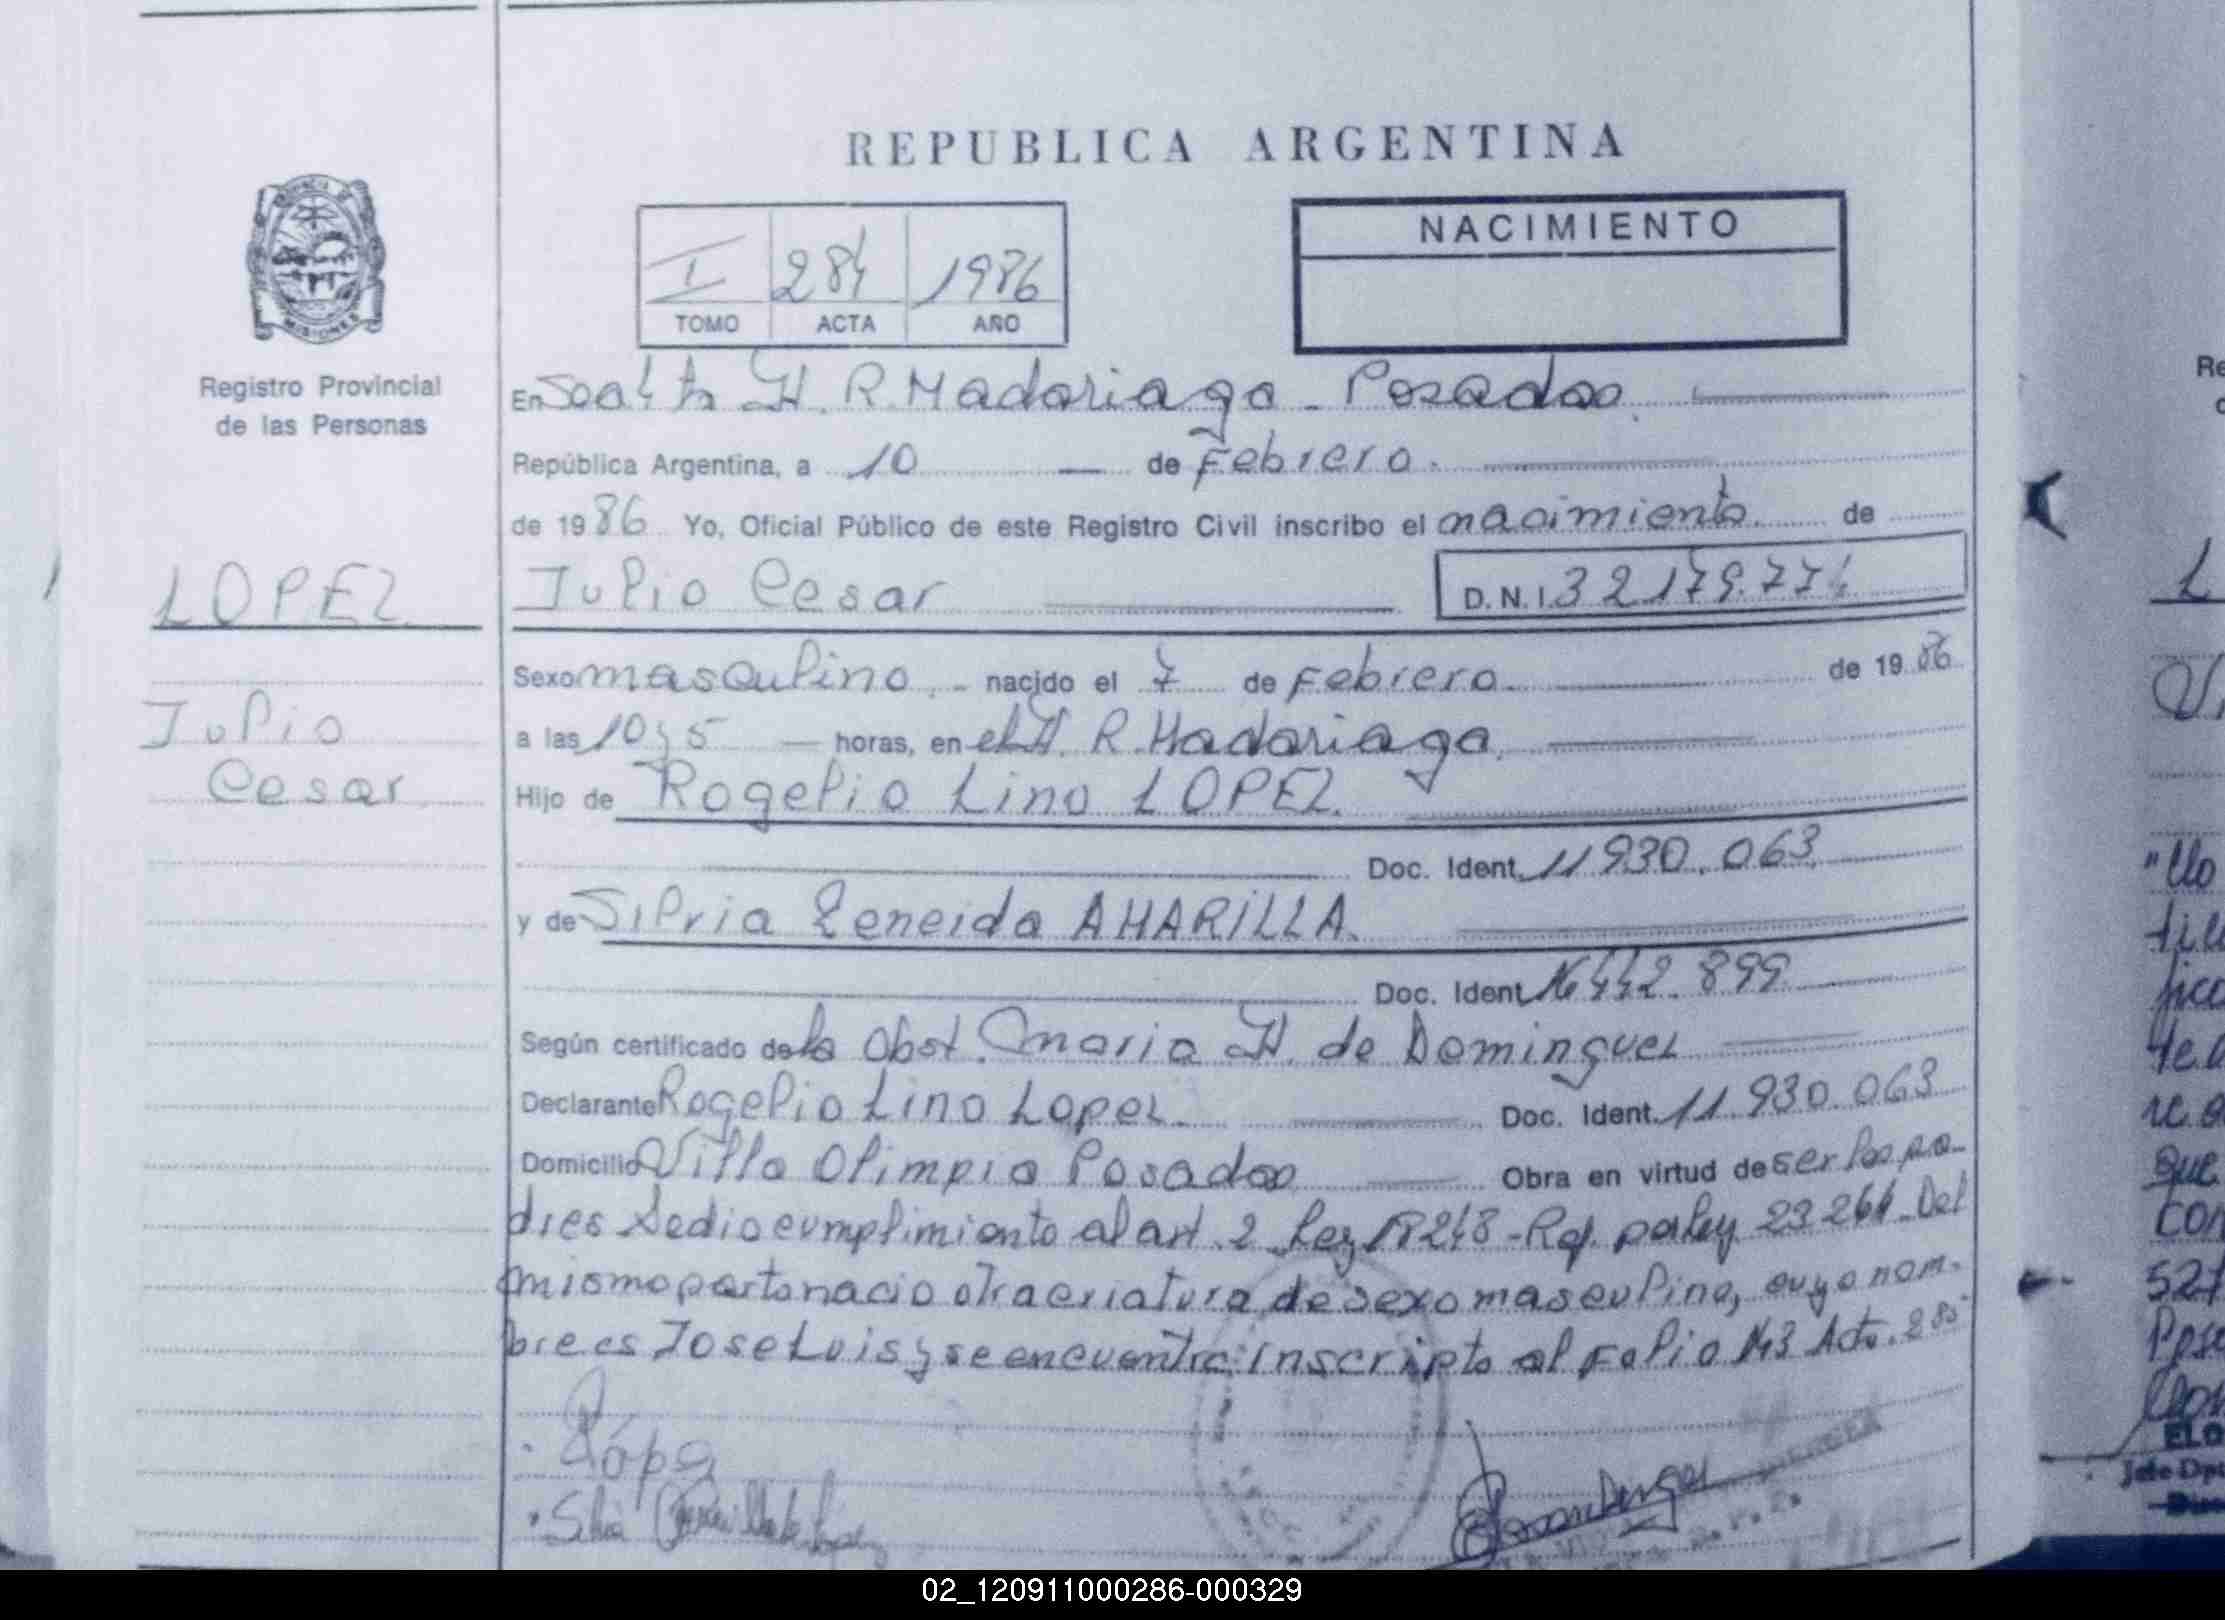 REPUBLICA ARGENTINA
NACIMIENTO
I 284 1986
TOMO ACTA AÑO
MISIONES
Registro Provincial
de las Personas
En Secc 4ta H. R. Madariaga - Posadas.
República Argentina, a 10 de Febrero.
de 1986 Yo, Oficial Público de este Registro Civil inscribo el nacimiento de
LOPEZ
Julio Cesar D.N.I. 32.179.774
Sexo masculino, - nacido el 7 de Febrero. de 1986
Julio
Cesar
a las 10 y 5 horas, en el H. R. Madariaga.
Hijo de Rogelio Lino LOPEZ.
Doc. Ident. 11.930.063
y de Silvia Zeneida AMARILLA.
Doc. Ident. 16.442.899
Según certificado de la Obst. Maria H. de Dominguez
Declarante Rogelio Lino Lopez. Doc. Ident. 11.930.063
Domicilio Villa Olimpia Posadas Obra en virtud de ser los pa-
dres Se dio cumplimiento al art. 2 Ley 18248 - Ref. por Ley 23264 - Del
mismo parto nacio otra criatura de sexo masculino, cuyo nom-
bre es Jose Luis y se encuentra inscripto al Folio 143 Acta. 285
02_120911000286-000329